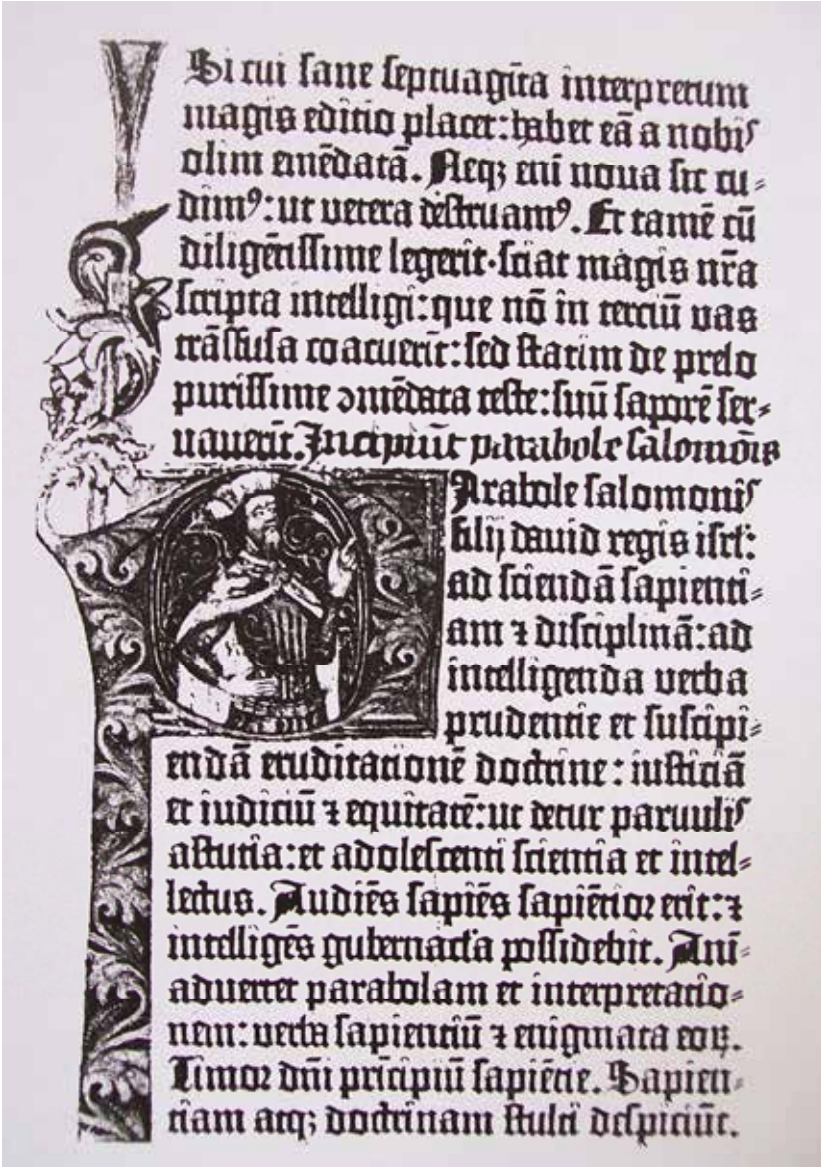 Si cui sane septuagīta interpretum
magis editio placet: habet eā a nobiſ
olim emēdatā. Neqꝫ eni noua sic cu⸗
dimꝰ: ut vetera destruamꝰ. Et tamē cū
diligētissime legerit·sciat magis nr̄a
scripta intelligi: que nō in terciū vas
trāsfusa coacuerit: sed statim de prelo
purissime ↄmēdata teste: suū saporē ser⸗
vauerit. Incipiūt parabole salomōis
Parabole salomoniſ
filij dauid regis isrl̄:
ad sciendā sapienti⸗
am ⁊ disciplinā: ad
intelligenda verba
prudentie et suscipi⸗
endā eruditationē doctrine: iusticiā
et iudiciū ⁊ equitatē: ut detur paruuliſ
astutia: et adolescenti scientia et intel⸗
lectus. Audiēs sapiēs sapiētior erit: ⁊
intelligēs gubernacl̄a possidebit. Ani⸗
aduertet parabolam et interpretatio⸗
nem: verba sapientiū ⁊ enigmata eoꝝ.
Timor dn̄i prīcipiū sapiētie. Sapien⸗
tiam atqꝫ doctrinam stulti despiciūt.